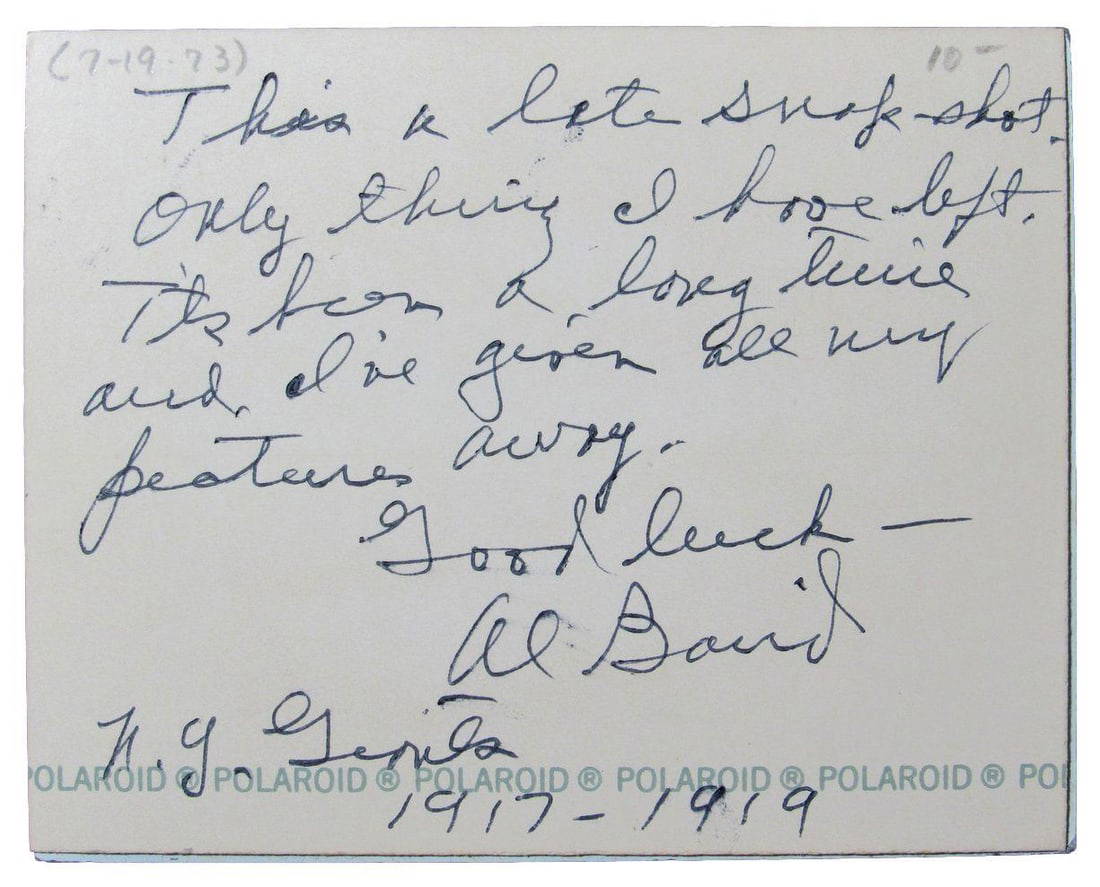 (7-19-73) 10-
This a late snap-shot.
Only thing I have left.
It's been a long time
and, I've given all my
pictures away.
Good luck —
Al Baird
N.Y. Giants
POLAROID ® POLAROID ® POLAROID ® POLAROID ® POLAROID ® POL
1917-1919